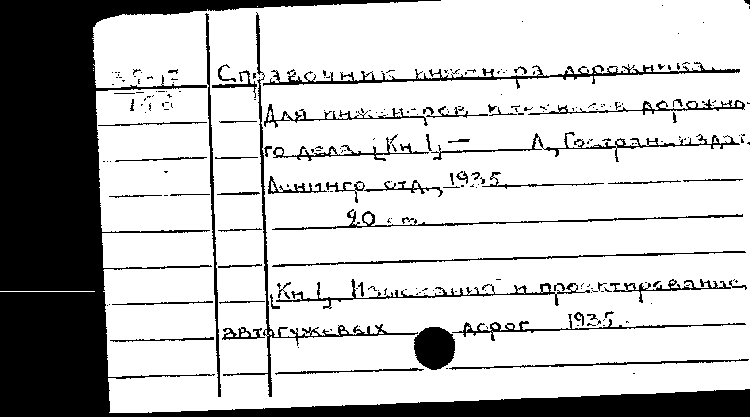 35-17
Справочник инженера дорожника.
Для инженеров и техников дорожно-
го дела. [Кн. 1] — Л., Гостран. издат.
Ленингр. отд., 1935.
20 см.
[Кн. 1]. Изыскания и проектирование
автогужевых дорог. 1935.